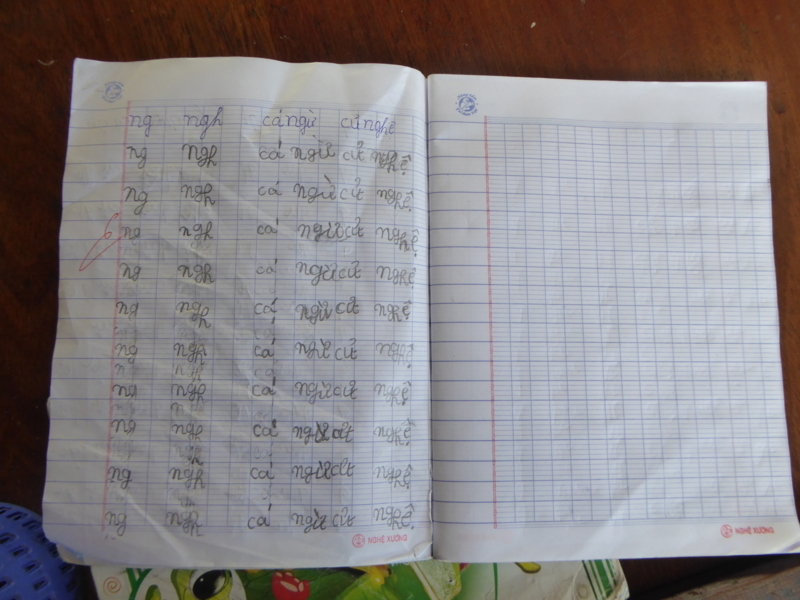 ng ngh cá ngừ củ nghệ
ng ngh cá ngừ củ nghệ
ng ngh cá ngừ củ nghệ
ng ngh cá ngừ củ nghệ
ng ngh cá ngừ củ nghệ
ng ngh cá ngừ củ nghệ
ng ngh cá ngừ củ nghệ
ng ngh cá ngừ củ nghệ
ng ngh cá ngừ củ nghệ
ng ngh cá ngừ củ nghệ
ng ngh cá ngừ củ nghệ